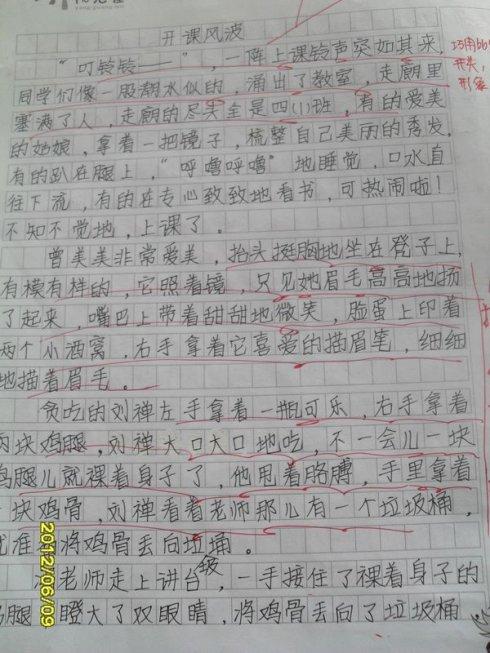 开课风波
“叮铃铃——”，一阵上课铃声突如其来，
同学们像一股潮水似的，涌出了教室，走廊里
塞满了人，走廊的尽头全是四(1)班，有的爱美
的姑娘，拿着一把镜子，梳整自己美丽的秀发，
有的趴在腿上，“呼噜呼噜”地睡觉，口水直
往下流，有的在专心致致地看书，可热闹啦！
不知不觉地，上课了。
曾美美非常爱美，抬头挺胸地坐在凳子上，
有模有样的，它照着镜，只见她眉毛高高地扬
了起来，嘴巴上带着甜甜地微笑，脸蛋上印着
两个小酒窝，右手拿着它喜爱的描眉笔，细细
地描着眉毛。
贪吃的刘禅左手拿着一瓶可乐，右手拿着
两块鸡腿，刘禅大口大口地吃，不一会儿一块
鸡腿儿就裸着身子了，他甩着胳膊，手里拿着
一块鸡骨，刘禅看着老师那儿有一个垃圾桶，
就准备将鸡骨丢向垃桶。
老师走上讲台，一手接住了裸着身子的
鸡腿，瞪大了双眼睛，将鸡骨丢向了垃圾桶
圾
巧用
开头，
形象
2012/06/09